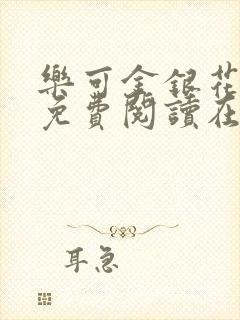 樂可金銀花
免費閱讀在
耳急